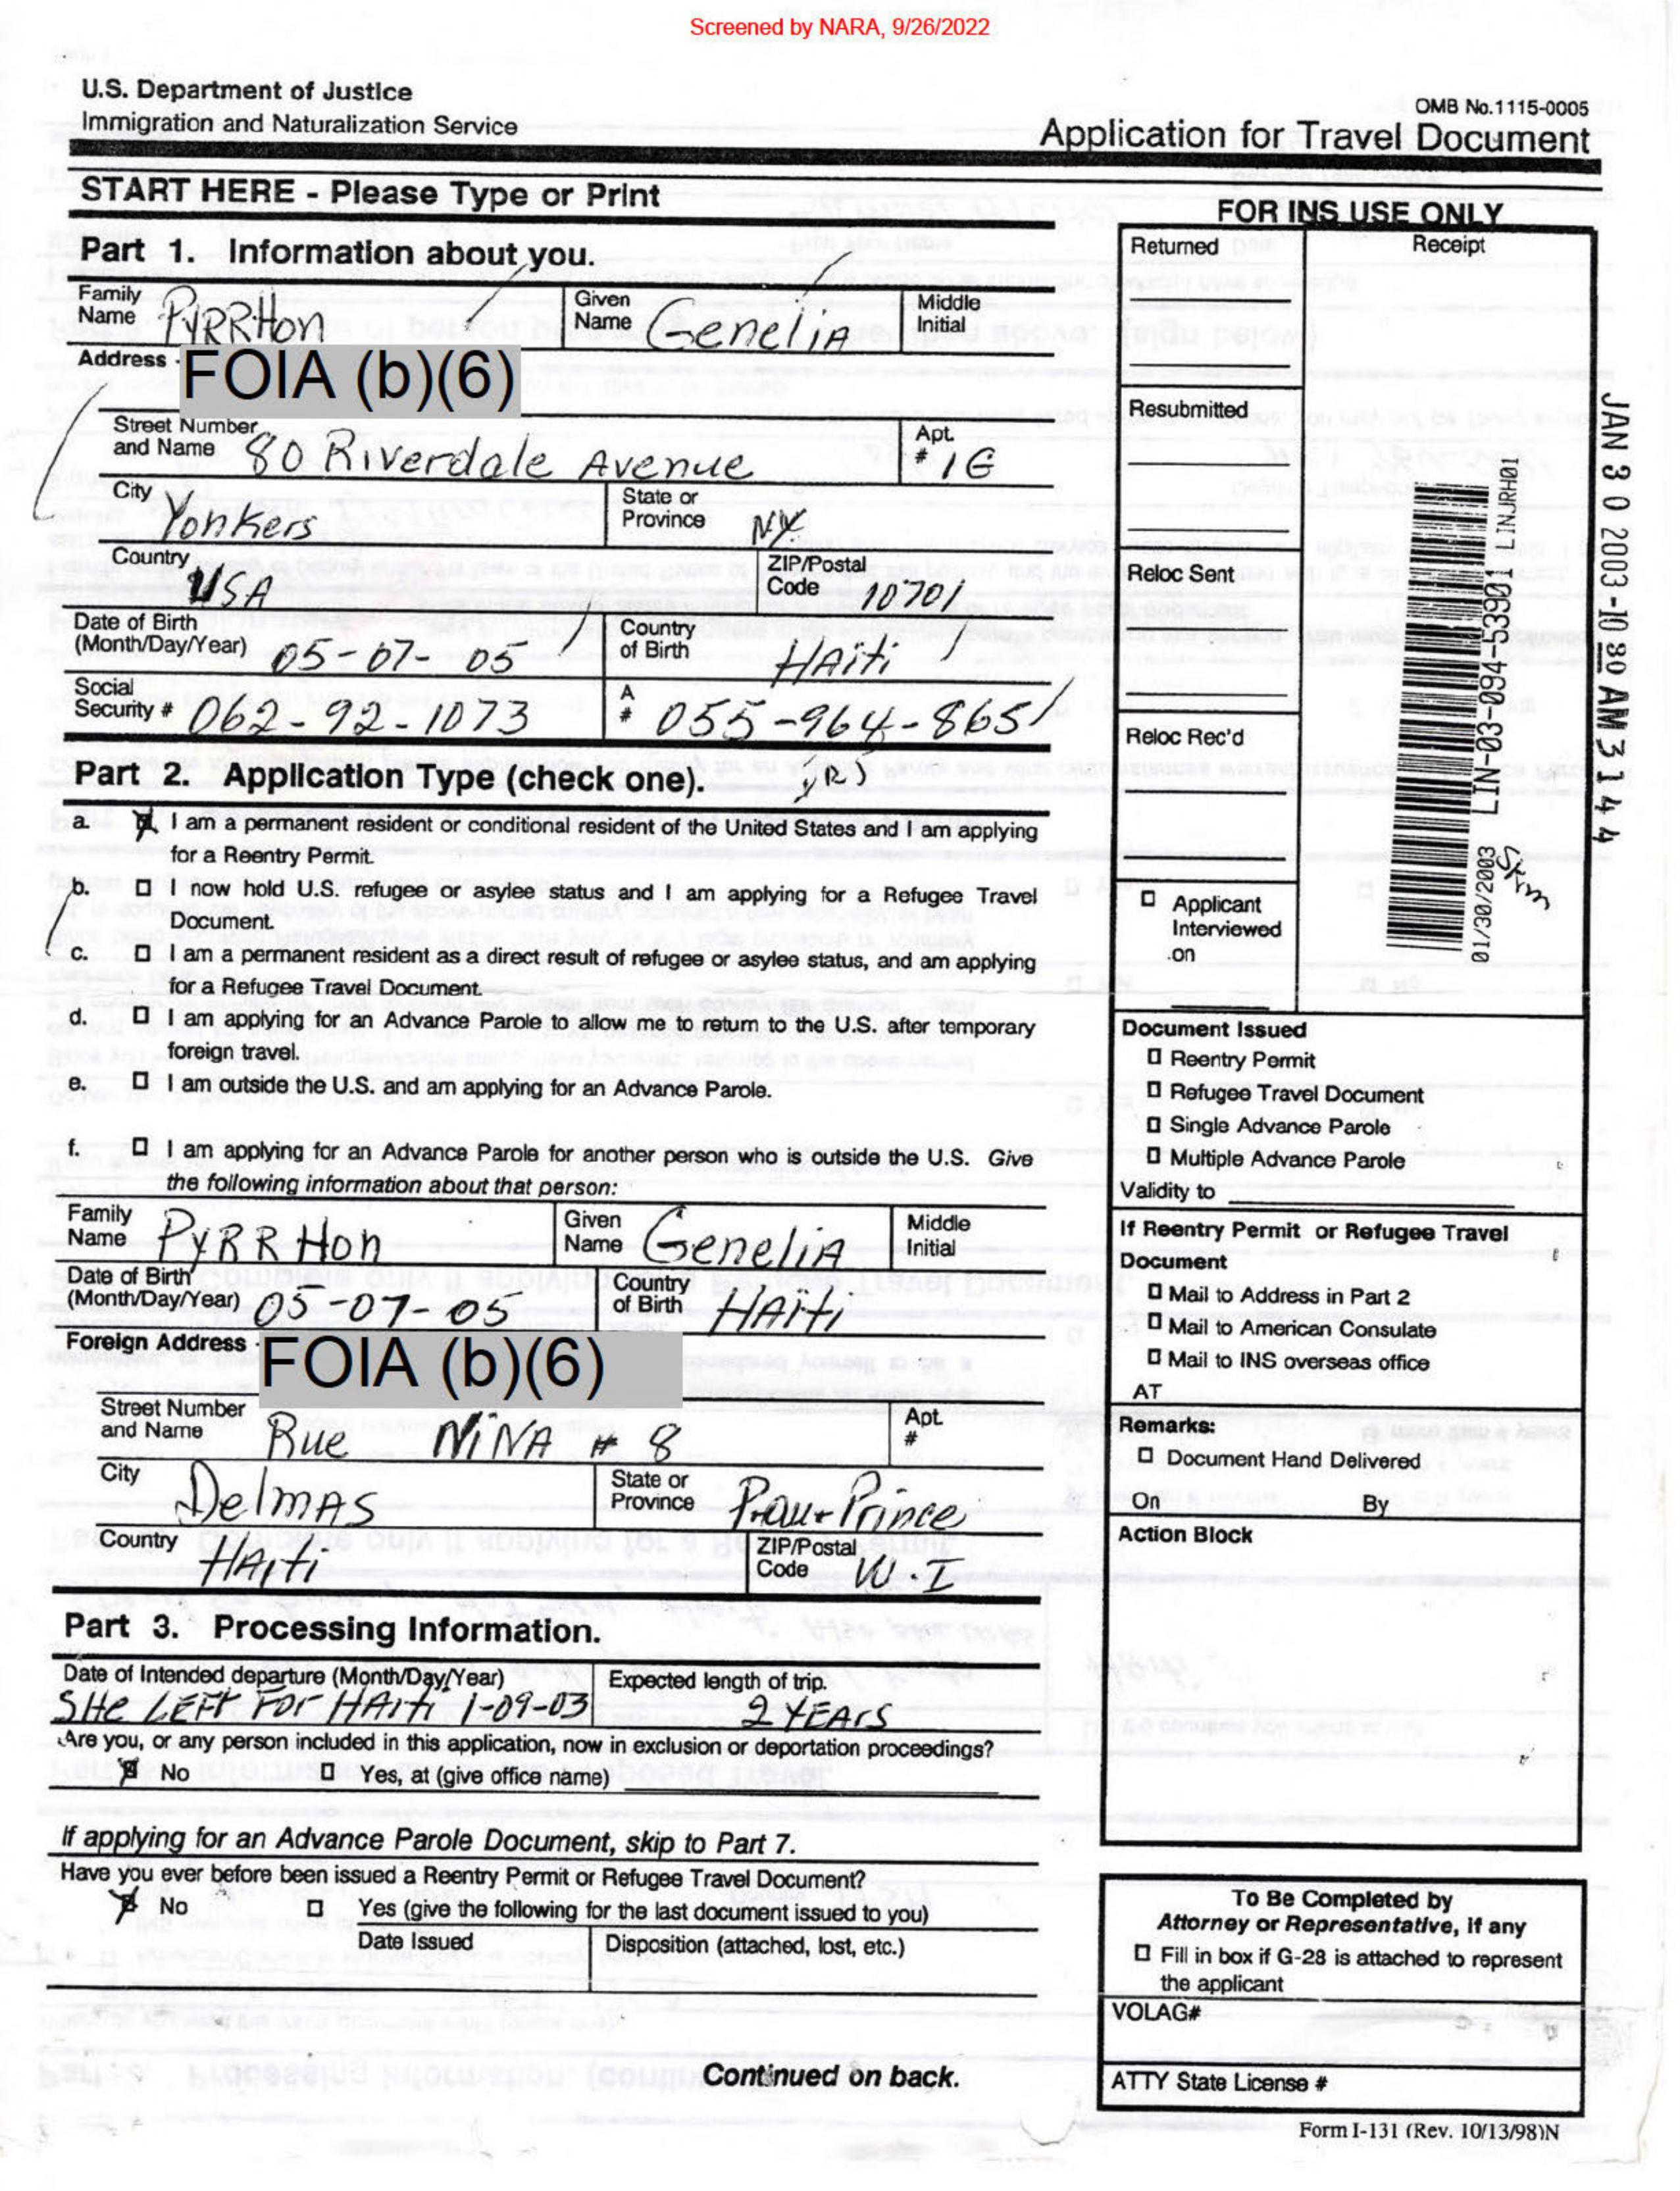 Screened by NARA, 9/26/2022
U.S. Department of Justice
Immigration and Naturalization Service
OMB No.1115-0005
Application for Travel Document
START HERE - Please Type or Print
FOR INS USE ONLY
Part 1. Information about you.
Family Name PYRRHon
Given Name GeneliA
Middle Initial
Address -
FOIA (b)(6)
Street Number and Name 80 Riverdale Avenue
Apt. # 1G
City Yonkers
State or Province NY
Country USA
ZIP/Postal Code 10701
Date of Birth (Month/Day/Year) 05-07-05
Country of Birth HAiti
Social Security # 062-92-1073
A # 055-964-865
Part 2. Application Type (check one).
a. I am a permanent resident or conditional resident of the United States and I am applying
for a Reentry Permit.
b. I now hold U.S. refugee or asylee status and I am applying for a Refugee Travel
Document.
c. I am a permanent resident as a direct result of refugee or asylee status, and am applying
for a Refugee Travel Document.
d. I am applying for an Advance Parole to allow me to return to the U.S. after temporary
foreign travel.
e. I am outside the U.S. and am applying for an Advance Parole.
f. I am applying for an Advance Parole for another person who is outside the U.S. Give
the following information about that person:
Family Name PYRRHon
Given Name GeneliA
Middle Initial
Date of Birth (Month/Day/Year) 05-07-05
Country of Birth HAiti
Foreign Address -
FOIA (b)(6)
Street Number and Name Rue NiNA # 8
Apt. #
City DelmAS
State or Province P-au-Prince
Country HAiti
ZIP/Postal Code W.I
Part 3. Processing Information.
Date of Intended departure (Month/Day/Year)
SHe LEFT For HAiti 1-09-03
Expected length of trip.
2 YEArs
Are you, or any person included in this application, now in exclusion or deportation proceedings?
No
Yes, at (give office name)
If applying for an Advance Parole Document, skip to Part 7.
Have you ever before been issued a Reentry Permit or Refugee Travel Document?
No
Yes (give the following for the last document issued to you)
Date Issued
Disposition (attached, lost, etc.)
Continued on back.
Returned
Receipt
Resubmitted
Reloc Sent
Reloc Rec'd
Applicant
Interviewed
on
LIN-03-094-53901 LINJRH01
01/30/2003
JAN 30 2003-1080 AM 3144
Document Issued
Reentry Permit
Refugee Travel Document
Single Advance Parole
Multiple Advance Parole
Validity to
If Reentry Permit or Refugee Travel
Document
Mail to Address in Part 2
Mail to American Consulate
Mail to INS overseas office
AT
Remarks:
Document Hand Delivered
On By
Action Block
To Be Completed by
Attorney or Representative, if any
Fill in box if G-28 is attached to represent
the applicant
VOLAG#
ATTY State License #
Form I-131 (Rev. 10/13/98)N